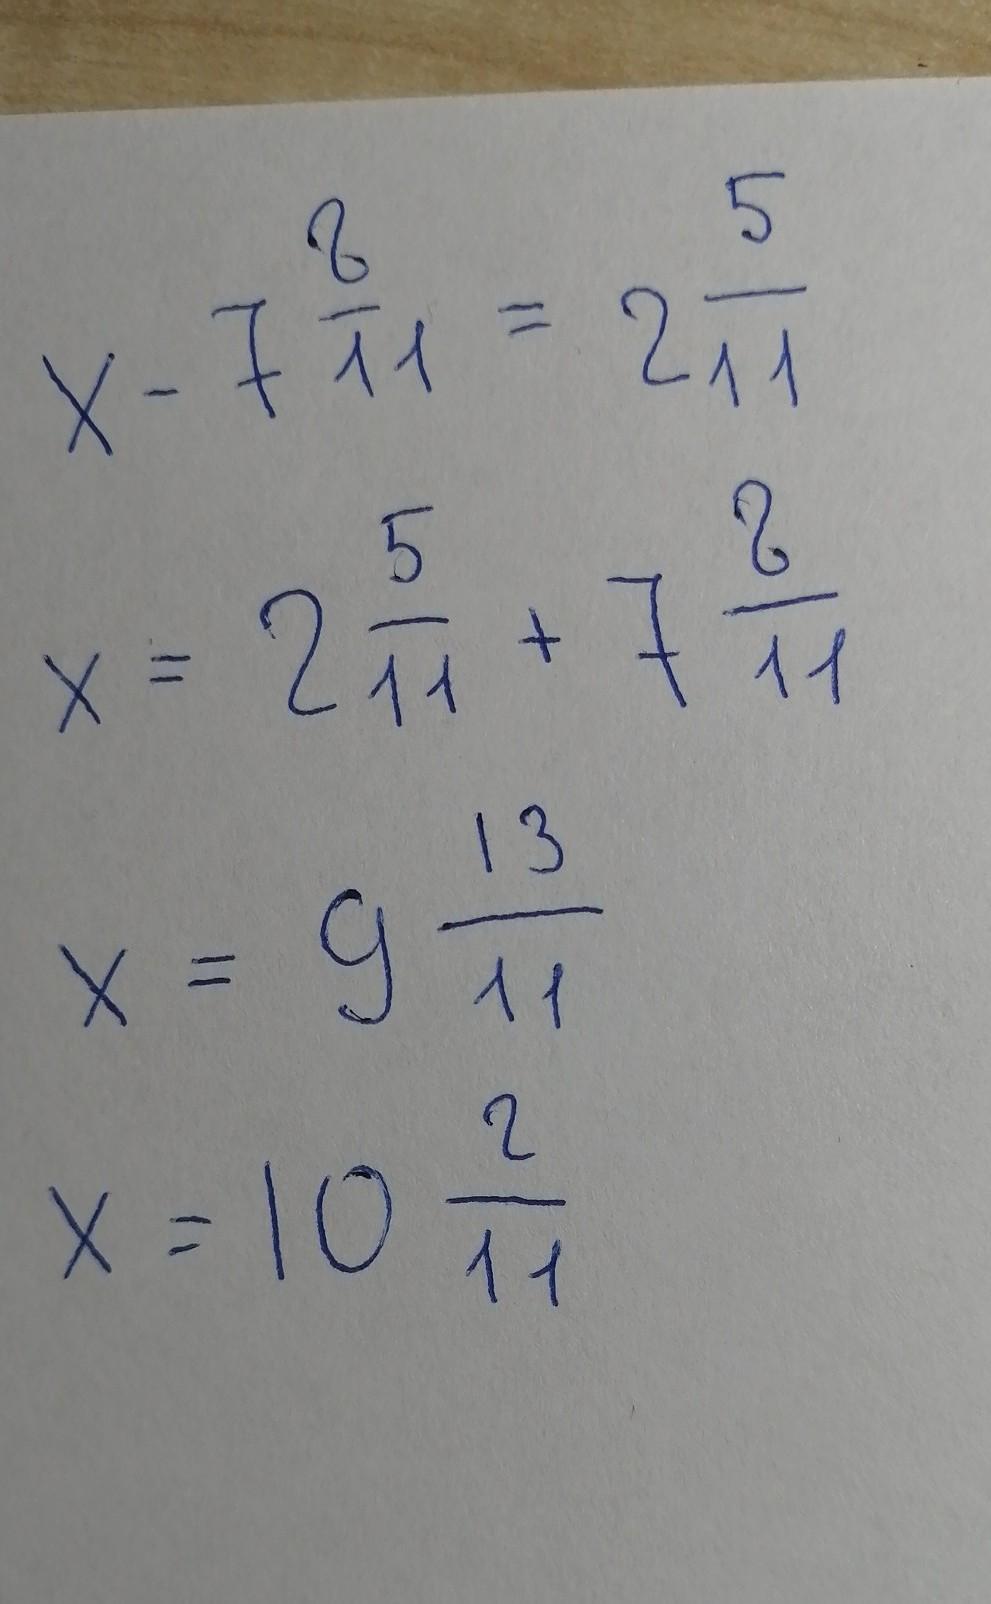 x - 7 8/11 = 2 5/11
x = 2 5/11 + 7 8/11
x = 9 13/11
x = 10 2/11